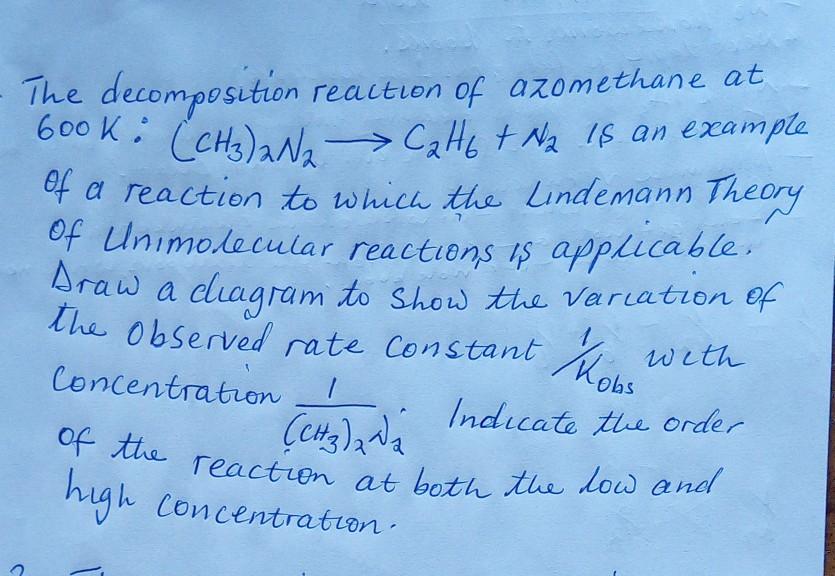 The decomposition reaction of azomethane at
600K: (CH₃)₂N₂ → C₂H₆ + N₂ is an example
of a reaction to which the Lindemann Theory
of Unimolecular reactions is applicable.
Draw a diagram to show the variation of
the observed rate constant 1/K_obs with
concentration 1/(CH₃)₂N₂. Indicate the order
of the reaction at both the low and
high concentration.